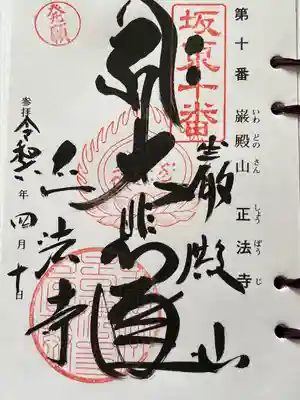 第十番 巌殿山 正法寺
いわ どの さん しょう ぼう じ
坂東十番
巌殿山
大悲殿
正法寺
発願
参拝 令和 年 四月十日